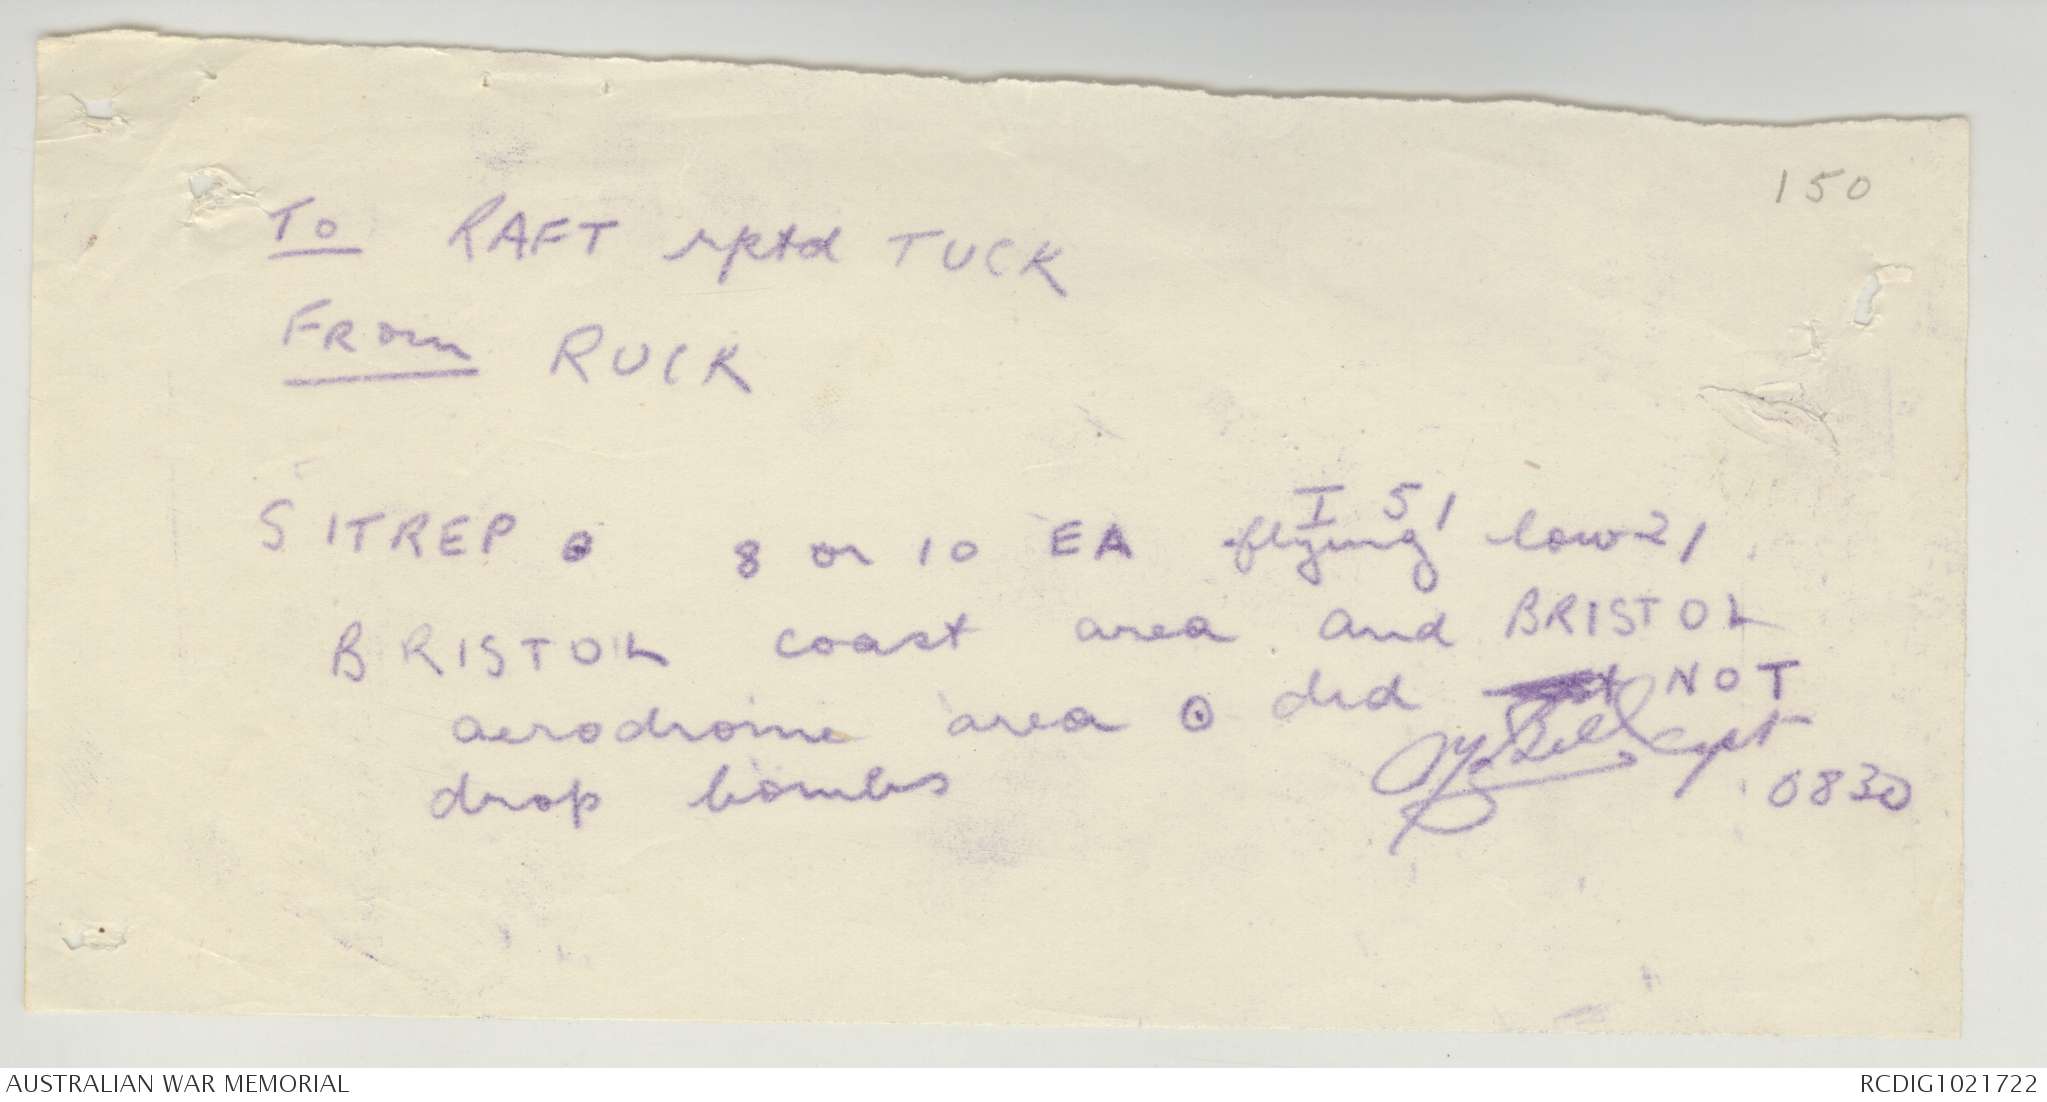 150
To RAFT rptd TUCK
From RUCK
I 51 21
SITREP ⊙ 8 or 10 EA flying low
BRISTOL coast area and BRISTOL
aerodrome area ⊙ did NOT
drop bombs
Bell Capt
0830
AUSTRALIAN WAR MEMORIAL
RCDIG1021722